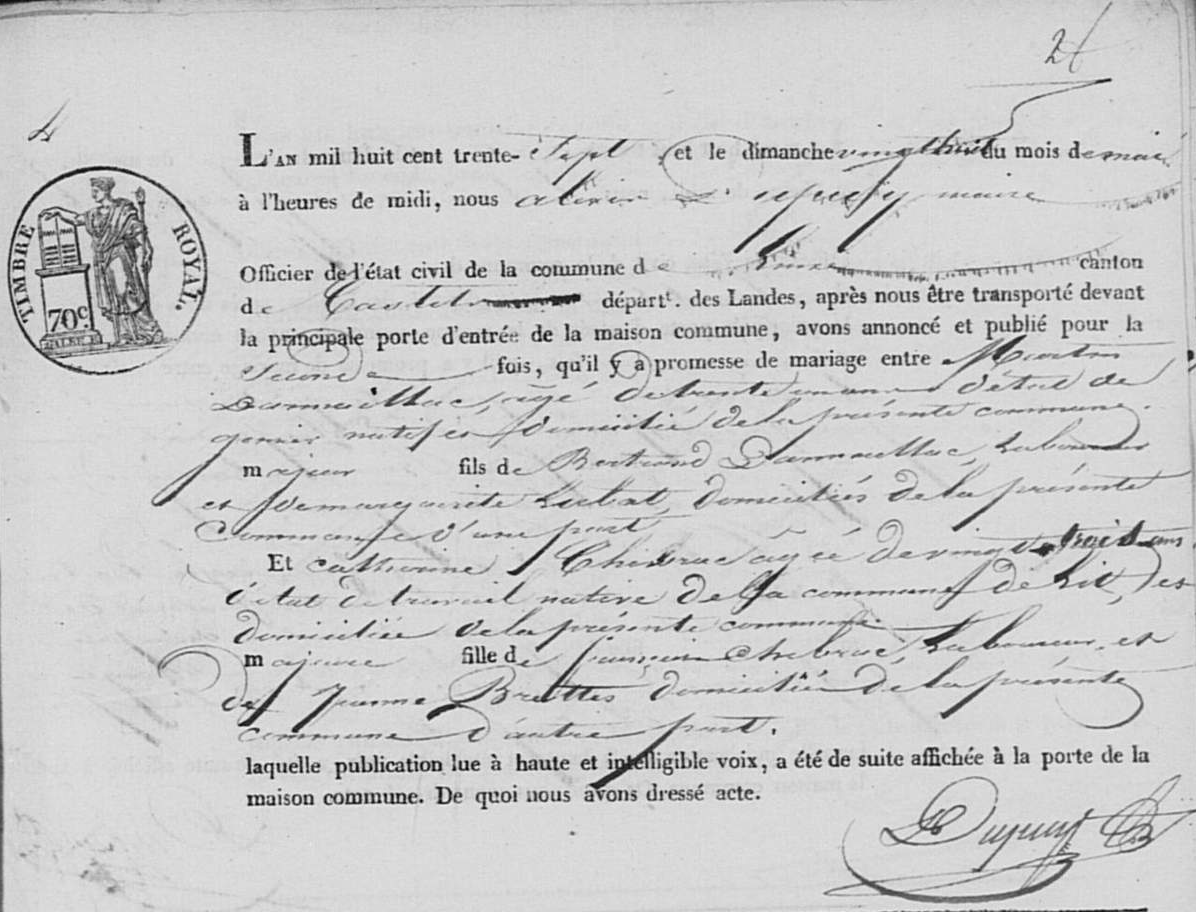 26
4
TIMBRE ROYAL.
70c
L'AN mil huit cent trente-Sept, et le dimanche vingt huit du mois de mai
à l'heures de midi, nous Dupuy maire
Officier de l'état civil de la commune de canton
de Castets départt. des Landes, après nous être transporté devant
la principale porte d'entrée de la maison commune, avons annoncé et publié pour la
Seconde fois, qu'il y a promesse de mariage entre Martin
Darmaillac, agé de trente un ans d'état de
natif et domicilié de la présente commune.
majeur fils de Bertrand Darmaillac, Laboureur
et de marguerite Lubat, domiciliés de la présente
Commune d'une part
Et catherine Chibrac agée de vingt trois ans
d'état de travail native de la commune de Lit, et
domiciliée de la présente commune.
majeure fille de françois Chibrac, Laboureur, et
de Jeanne Brettes domiciliés de la présente
commune d'autre part.
laquelle publication lue à haute et intelligible voix, a été de suite affichée à la porte de la
maison commune. De quoi nous avons dressé acte.
Dupuy